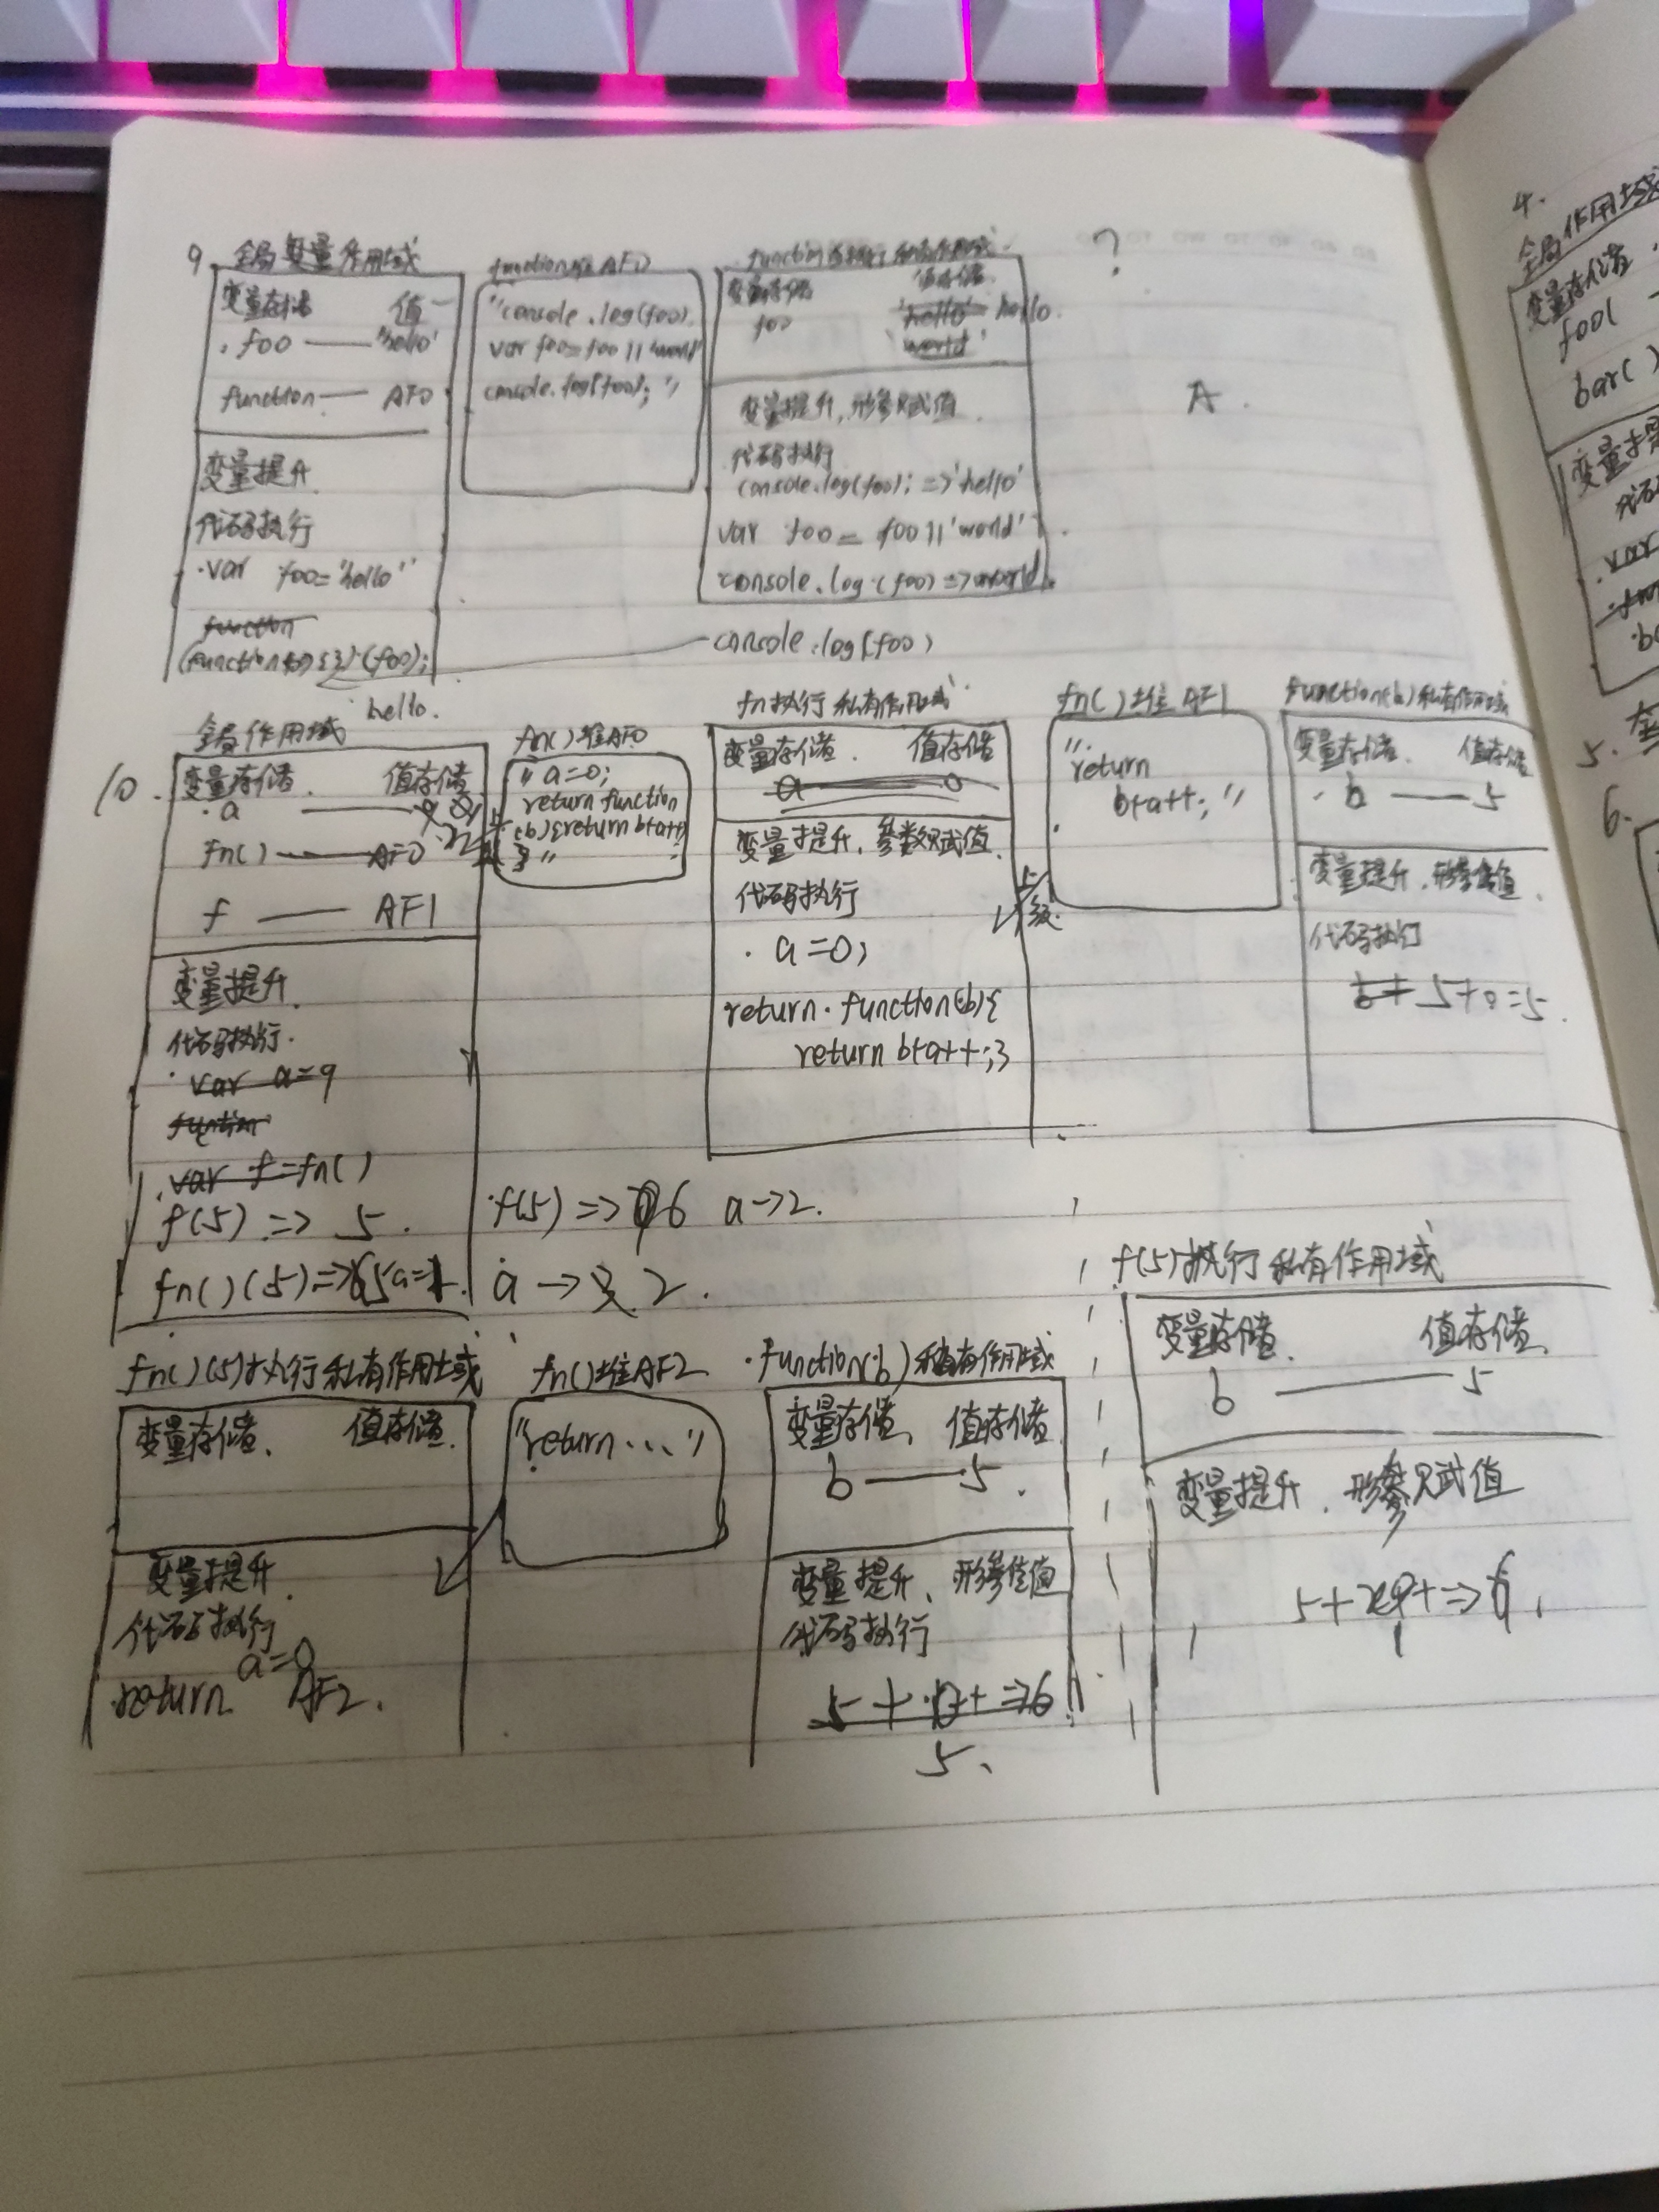 9. 全局变量作用域
变量存储 值
foo —— 'hello'
function —— AF0
变量提升
代码执行
var foo='hello'
function
(function(foo){})(foo);
hello.
function堆 AF0
"console.log(foo).
var foo=foo||'world'
console.log(foo);"
私有作用域
变量存储 值存储
foo 'hello' hello.
'world'
变量提升,形参赋值
代码执行
console.log(foo); =>'hello'
var foo = foo||'world'
console.log(foo)=>world.
console.log(foo)
?
A.
10.
全局作用域
变量存储 值存储
a —— 9
fn() —— AF0
f —— AF1
变量提升.
代码执行.
var a=9
function
var f=fn()
f(5) => 5.
fn()(5)=>5 a=1.
fn()堆AF0
"a=0;
return function
(b){return b+a++
}"
上级
fn执行 私有作用域
变量存储. 值存储
a —— 0
变量提升,参数赋值.
代码执行
a=0;
return function(b){
return b+a++;}
上级
fn()堆 AF1
"return
b+a++;"
function(b)私有作用域
变量存储. 值存储
b —— 5
变量提升.形参赋值.
代码执行
5+0=5.
f(5)=>6 a->2.
a -> 2.
fn()(5)执行私有作用域
变量存储、 值存储.
变量提升.
代码执行
a=0
return AF2.
fn()堆AF2
"return..."
function(b)私有作用域
变量存储、 值存储
b —— 5.
变量提升、形参赋值
代码执行
5、
f(5)执行私有作用域
变量存储、 值存储、
b —— 5
变量提升、形参赋值
1
4.
全局作用域
变量存储
foo(
bar()
变量提
代码
.var
5. 全
6.